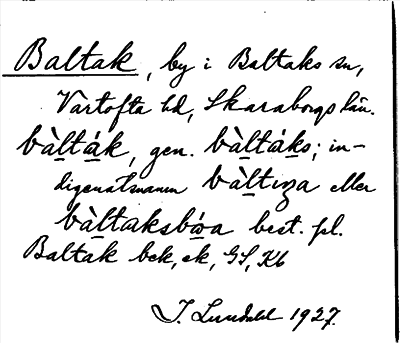 Baltak, by i Baltaks sn,
Vartofta hd, Skaraborgs län.
bàlták, gen. bàltáks; in-
digenatsnamn bàltiŋa eller
bàltaksbóa best. pl.
Baltak bek, ek, GS, Kb
I. Lundahl 1927.